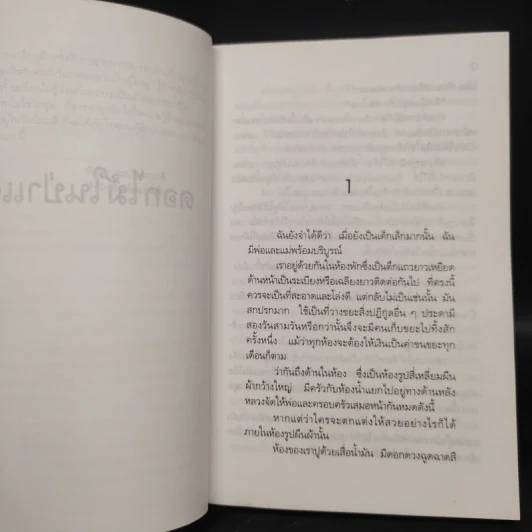 1
ฉันยังจำได้ดีว่า เมื่อยังเป็นเด็กเล็กมากนั้น ฉัน
มีพ่อและแม่พร้อมบริบูรณ์
เราอยู่ด้วยกันในห้องพักซึ่งเป็นตึกแถวยาวเหยียด
ด้านหน้าเป็นระเบียงหรือเฉลียงยาวติดต่อกันไป ที่ตรงนี้
ควรจะเป็นที่สะอาดและโล่งดี แต่กลับไม่เป็นเช่นนั้น มัน
สกปรกมาก ใช้เป็นที่วางขยะสิ่งปฏิกูลอื่น ๆ ประดามี
สองวันสามวันหรือกว่านั้นจึงจะมีคนเก็บขยะไปทิ้งสัก
ครั้งหนึ่ง แม้ว่าทุกห้องจะต้องให้เงินเป็นค่าขนขยะทุก
เดือนก็ตาม
ว่ากันถึงด้านในห้อง ซึ่งเป็นห้องรูปสี่เหลี่ยมผืน
ผ้ากว้างใหญ่ มีครัวกับห้องน้ำแยกไปอยู่ทางด้านหลัง
หลวงจัดให้พ่อและครอบครัวเสมอหน้ากันหมดดังนี้
หากแต่ว่าใครจะตกแต่งให้สวยอย่างไรก็ได้
ภายในห้องรูปผืนผ้านั้น
ห้องของเราปูด้วยเสื่อน้ำมัน มีดอกดวงฉูดฉาดสี